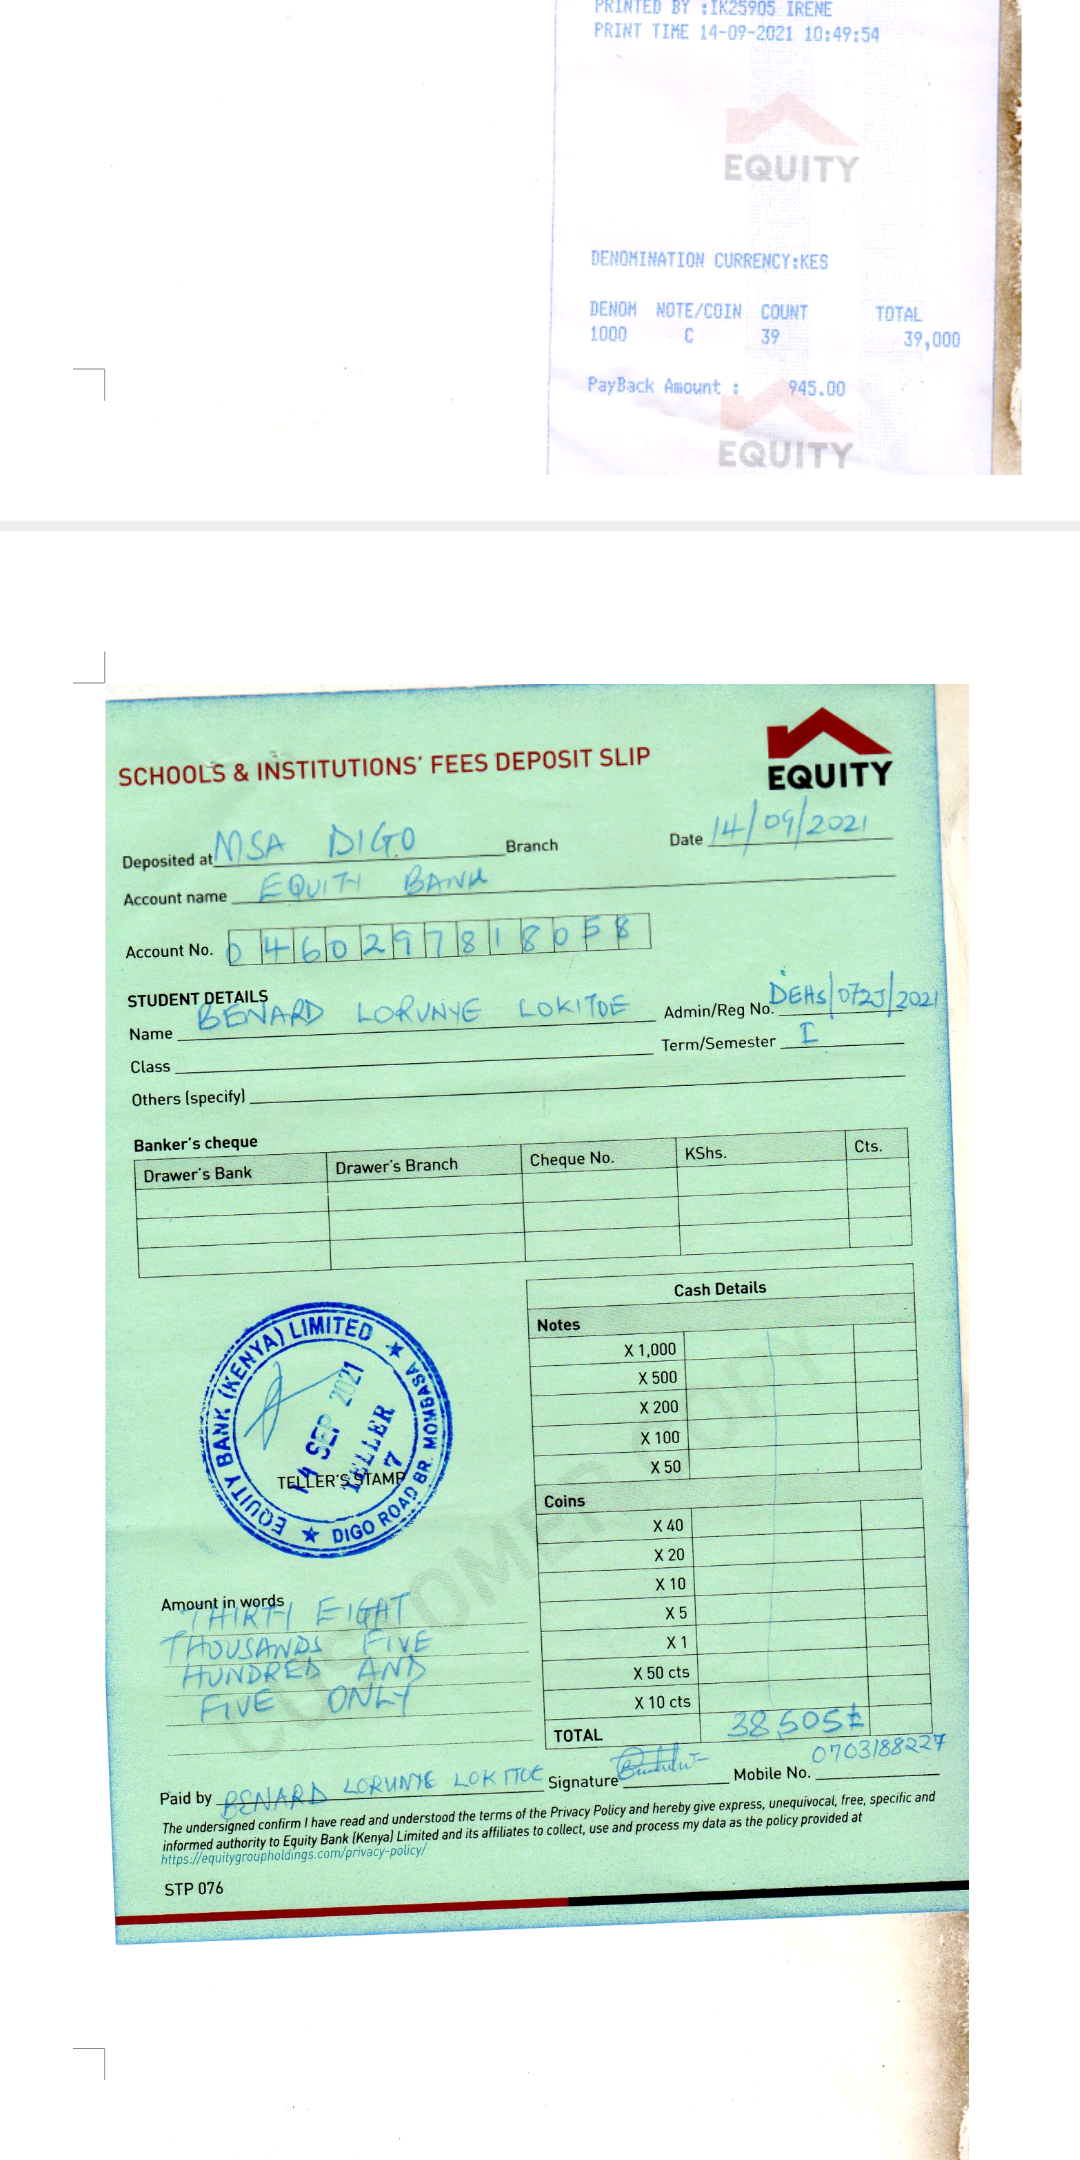 PRINTED BY :IK25905 IRENE
PRINT TIME 14-09-2021 10:49:54
EQUITY
DENOMINATION CURRENCY:KES
DENOM NOTE/COIN COUNT TOTAL
1000 C 39 39,000
PayBack Amount : 945.00
EQUITY
SCHOOLS & INSTITUTIONS' FEES DEPOSIT SLIP
EQUITY
Deposited at MSA DIGO Branch Date 14/09/2021
Account name EQUITY BANK
Account No. 0460297818058
STUDENT DETAILS
Name BENARD LORUNYE LOKITOE Admin/Reg No. DEHS/072J/2021
Class Term/Semester I
Others (specify)
Banker's cheque
Drawer's Bank Drawer's Branch Cheque No. KShs. Cts.
Cash Details
Notes
X 1,000
X 500
X 200
X 100
X 50
Coins
X 40
X 20
X 10
X 5
X 1
X 50 cts
X 10 cts
TOTAL 38,505
EQUITY BANK (KENYA) LIMITED ★ DIGO ROAD BR. MOMBASA ★
14 SEP 2021
TELLER 7
TELLER'S STAMP
CUSTOMER COPY
Amount in words
THIRTY EIGHT
THOUSANDS FIVE
HUNDRED AND
FIVE ONLY
Paid by BENARD LORUNYE LOKITOE Signature Mobile No. 0703188227
The undersigned confirm I have read and understood the terms of the Privacy Policy and hereby give express, unequivocal, free, specific and
informed authority to Equity Bank (Kenya) Limited and its affiliates to collect, use and process my data as the policy provided at
https://equitygroupholdings.com/privacy-policy/
STP 076